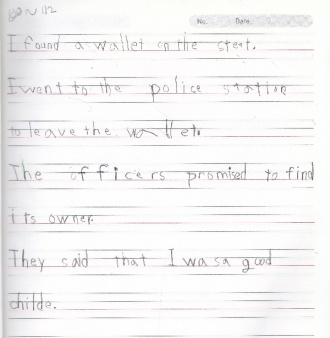 No. Date.
I found a wallet on the steet.
I went to the police station
to leave the wallet.
The officers promised to find
its owner.
They said that I was a good
childe.